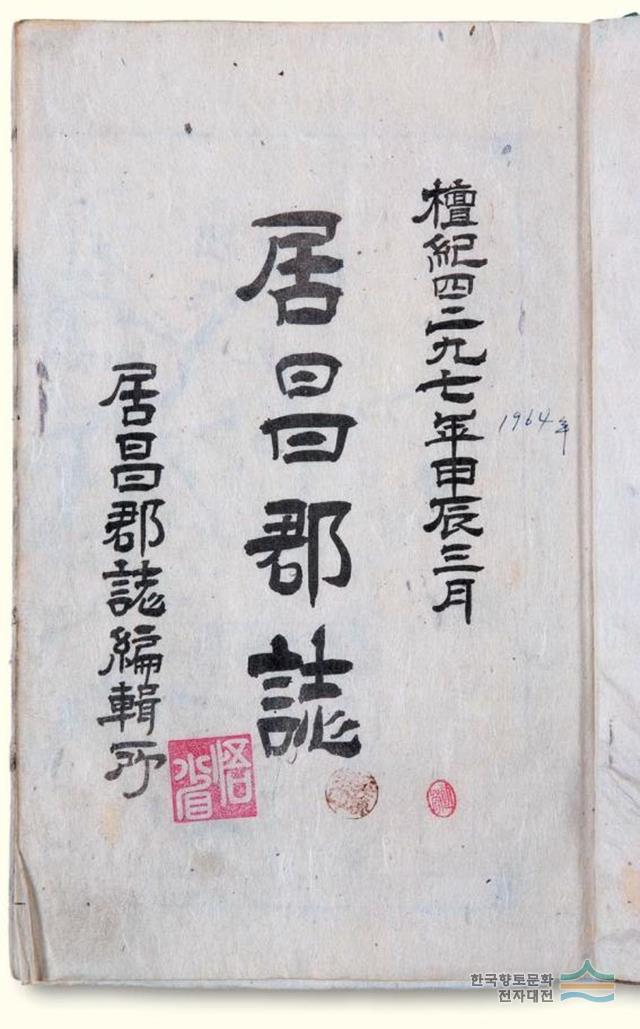 檀紀四二九七年甲辰三月
1964年
居昌郡誌
居昌郡誌編輯所
한국향토문화
전자대전